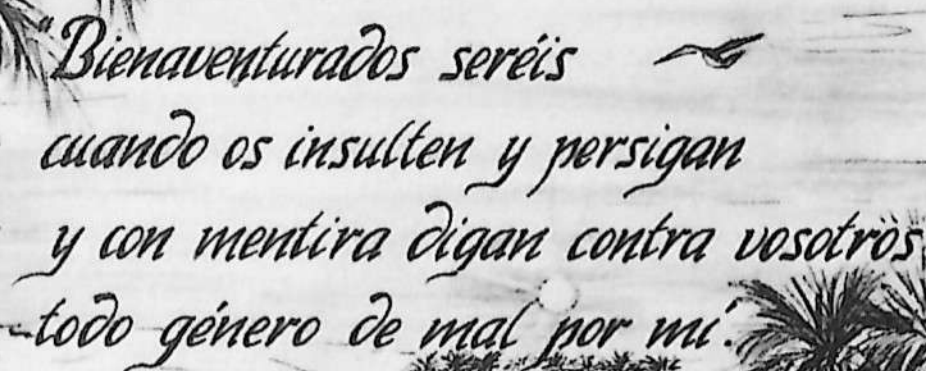 "Bienaventurados seréis
cuando os insulten y persigan
y con mentira digan contra vosotros
todo género de mal por mí.